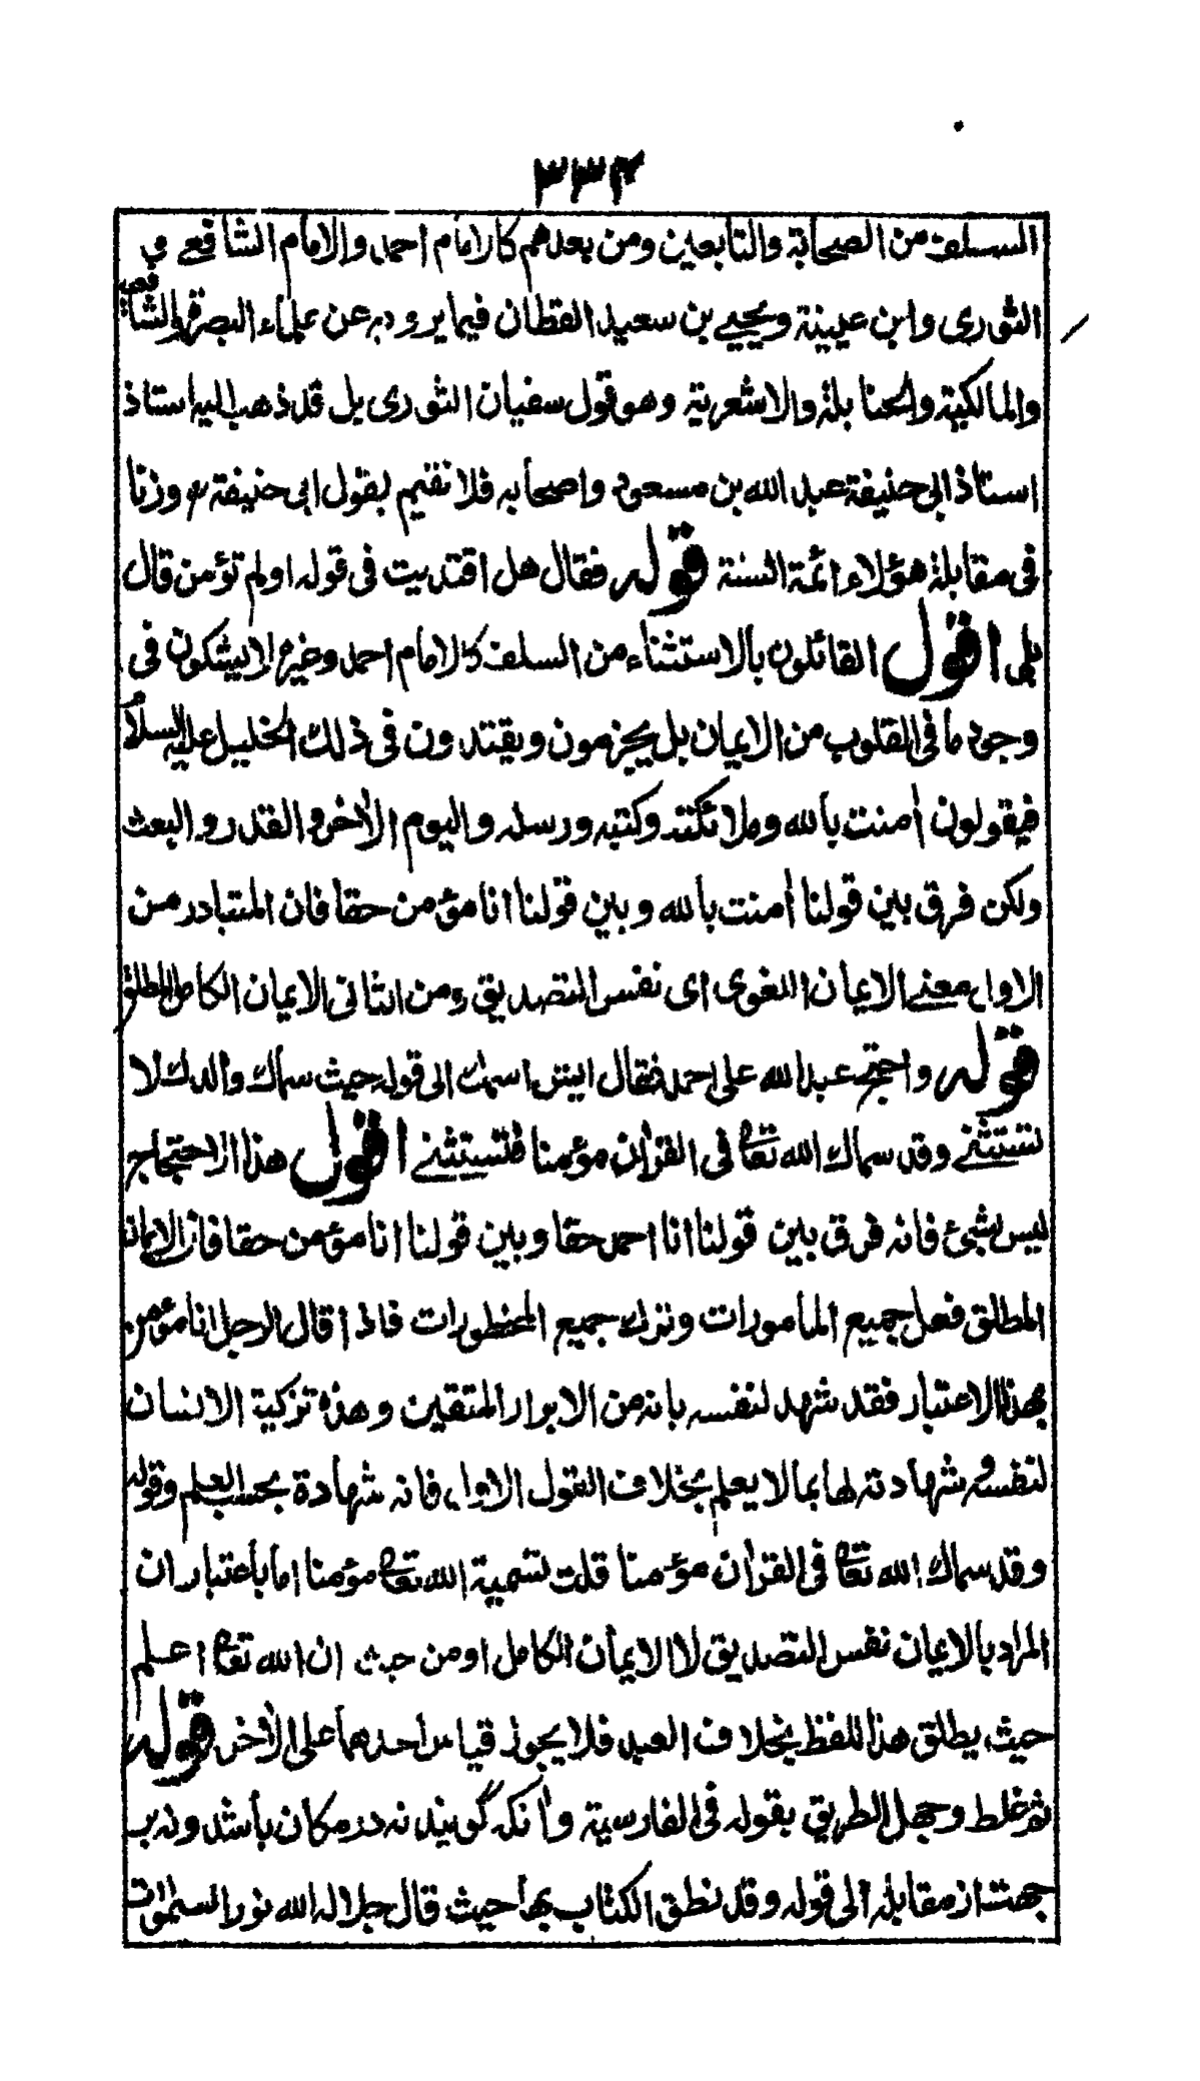 ٣٣٤
السلف من الصحابة والتابعين ومن بعدهم كالامام احمد والامام الشافعے و
الثوری وابن عيينة ويحيے بن سعيد القطان فيما يروونه عن علماء البصرة والشافعية
والمالكية والحنابلة والاشعرية وهو قول سفيان الثوری بل قد ذهب اليه استاذ
استاذ ابی حنيفة عبد الله بن مسعود واصحابه فلا نقيم لقول ابی حنيفة رح وزنا
فی مقابلة هؤلاء ائمة السنة قوله فقال هل اقتديت فی قوله اولم تؤمن قال
بلی اقول القائلون بالاستثناء من السلف كالامام احمد وغيره لا يشكون فی
وجود ما فی القلوب من الايمان بل يجزمون ويقتدون فی ذلك الخليل عليه السلام
فيقولون أمنت بالله وملائكته وكتبه ورسله واليوم الأخر والقدر والبعث
ولكن فرق بين قولنا أمنت بالله وبين قولنا انا مؤمن حقا فان المتبادر من
الاول معنے الايمان اللغوی ای نفس التصديق ومن الثانی الايمان الكامل المطلق
قوله واحتج عبد الله علی احمد فقال ايش اسمك الی قوله حيث سماك والدك لا
تستثنے وقد سماك الله تعالی فی القرأن مؤمنا فتستثنے اقول هذا الاحتجاج
ليس بشئ فانه فرق بين قولنا انا احمد حقا وبين قولنا انا مؤمن حقا فان الايمان
المطلق فعل جميع المامورات وترك جميع المحظورات فاذا قال الرجل انا مؤمن
بهذا الاعتبار فقد شهد لنفسه بانه من الابرار المتقين وهذه تزكية الانسان
لنفسه وشهادته لها بما لا يعلم بخلاف القول الاول فانه شهادة بحسب العلم وقوله
وقد سماك الله تعالی فی القرأن مؤمنا قلت تسمية الله تعالی مؤمنا اما باعتبار ان
المراد بالايمان نفس التصديق لا الايمان الكامل او من حيث ان الله تعالی اعلم
حيث يطلق هذا اللفظ بخلاف العبد فلا يجوز قياس احدهما علی الأخر قوله
ثم غلط وجهل الطريق بقوله فی الفارسية وأنكه گويند نه در مكان باشد ونه بر
جهت از مقابله الی قوله وقد نطق الكتاب بها حيث قال جل جلاله الله نور السموات